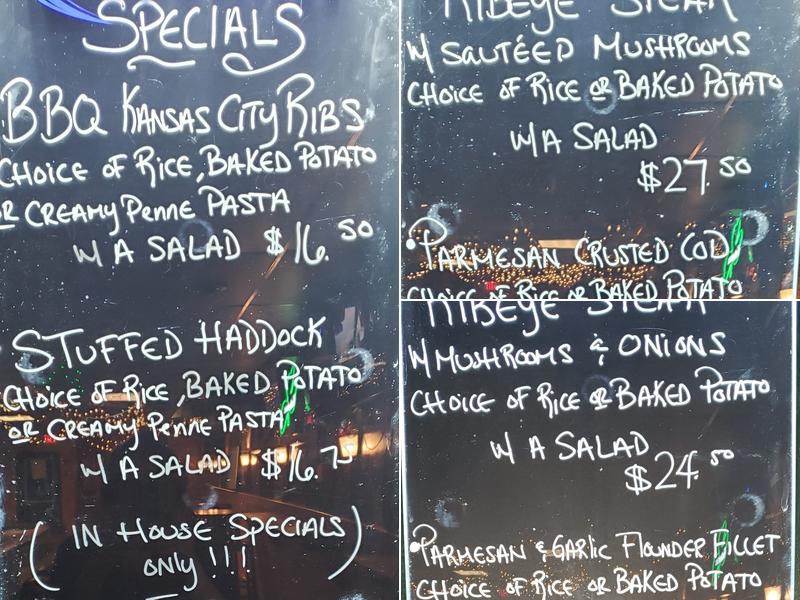 SPECIALS
BBQ KANSAS CITY RIBS
CHOICE OF RICE, BAKED POTATO
OR CREAMY PENNE PASTA
W A SALAD $16.50
STUFFED HADDOCK
CHOICE OF RICE, BAKED POTATO
OR CREAMY PENNE PASTA
W A SALAD $16.75
(IN HOUSE SPECIALS
ONLY!!!)
RIBEYE STEAK
W SAUTÉED MUSHROOMS
CHOICE OF RICE OR BAKED POTATO
W/A SALAD
$27.50
• PARMESAN CRUSTED COD
CHOICE OF RICE OR BAKED POTATO
RIBEYE STEAK
W MUSHROOMS & ONIONS
CHOICE OF RICE OR BAKED POTATO
W A SALAD
$24.50
• PARMESAN & GARLIC FLOUNDER FILLET
CHOICE OF RICE OR BAKED POTATO